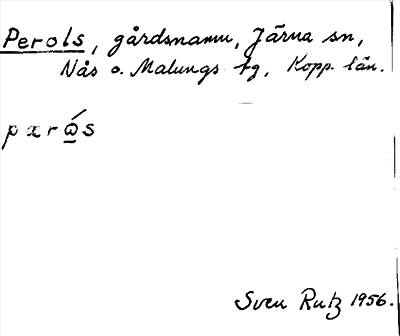 Perols, gårdsnamn, Järna sn,
Nås o. Malungs tg, Kopp. län.
pærώ̲s
Sven Rutz 1956.